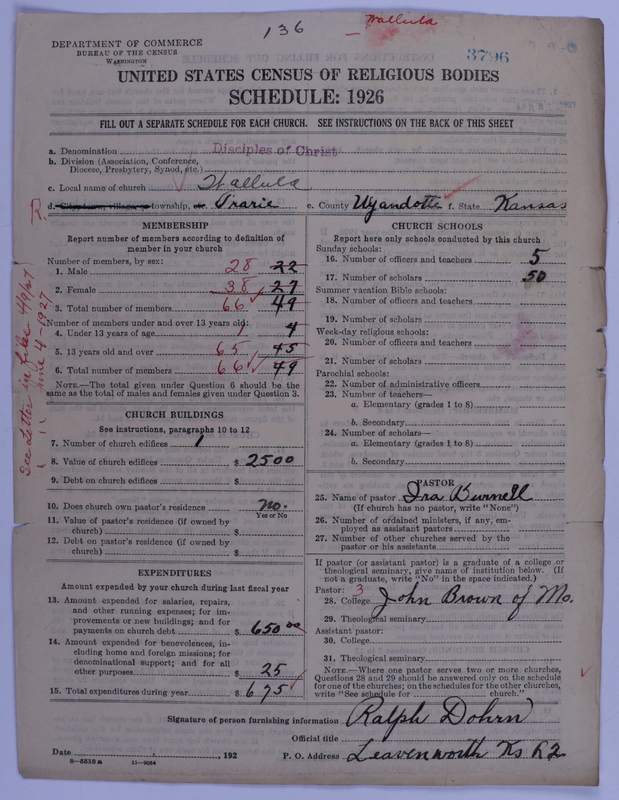 136
Wallula
3796
DEPARTMENT OF COMMERCE
BUREAU OF THE CENSUS
WASHINGTON
UNITED STATES CENSUS OF RELIGIOUS BODIES
SCHEDULE: 1926
FILL OUT A SEPARATE SCHEDULE FOR EACH CHURCH. SEE INSTRUCTIONS ON THE BACK OF THIS SHEET
a. Denomination Disciples of Christ
b. Division (Association, Conference, Diocese, Presbytery, Synod, etc.)
c. Local name of church Wallula
R. d. City, town, village, or township, etc. Prarie e. County Wyandotte f. State Kansas
MEMBERSHIP
Report number of members according to definition of
member in your church
Number of members, by sex:
1. Male 28 22
2. Female 38 27
3. Total number of members 66 49
Number of members under and over 13 years old:
4. Under 13 years of age 1 4
5. 13 years old and over 65 45
6. Total number of members 66 49
NOTE.—The total given under Question 6 should be the
same as the total of males and females given under Question 3.
See Letter in files 4/9/27
" " " June 4-1927
CHURCH BUILDINGS
See instructions, paragraphs 10 to 12
7. Number of church edifices 1
8. Value of church edifices $ 2500
9. Debt on church edifices $
10. Does church own pastor's residence no.
Yes or No
11. Value of pastor's residence (if owned by
church) $
12. Debt on pastor's residence (if owned by
church) $
EXPENDITURES
Amount expended by your church during last fiscal year
13. Amount expended for salaries, repairs,
and other running expenses; for im-
provements or new buildings; and for
payments on church debt $ 650 00
14. Amount expended for benevolences, in-
cluding home and foreign missions; for
denominational support; and for all
other purposes $ 25
15. Total expenditures during year $ 675
CHURCH SCHOOLS
Report here only schools conducted by this church
Sunday schools:
16. Number of officers and teachers 5
17. Number of scholars 50
Summer vacation Bible schools:
18. Number of officers and teachers
19. Number of scholars
Week-day religious schools:
20. Number of officers and teachers
21. Number of scholars
Parochial schools:
22. Number of administrative officers
23. Number of teachers—
a. Elementary (grades 1 to 8)
b. Secondary
24. Number of scholars—
a. Elementary (grades 1 to 8)
b. Secondary
PASTOR
25. Name of pastor Ira Burnell
(If church has no pastor, write "None")
26. Number of ordained ministers, if any, em-
ployed as assistant pastors
27. Number of other churches served by the
pastor or his assistants
If pastor (or assistant pastor) is a graduate of a college or
theological seminary, give name of institution below. (If
not a graduate, write "No" in the space indicated.)
Pastor: 3
28. College John Brown of Mo.
29. Theological seminary
Assistant pastor:
30. College
31. Theological seminary
NOTE.—Where one pastor serves two or more churches,
Questions 28 and 29 should be answered only on the schedule
for one of the churches; on the schedules for the other churches,
write "See schedule for church."
Signature of person furnishing information Ralph Dohrn
Official title
Date , 192 P. O. Address Leavenworth Ks R2
8—5518a 11—9084